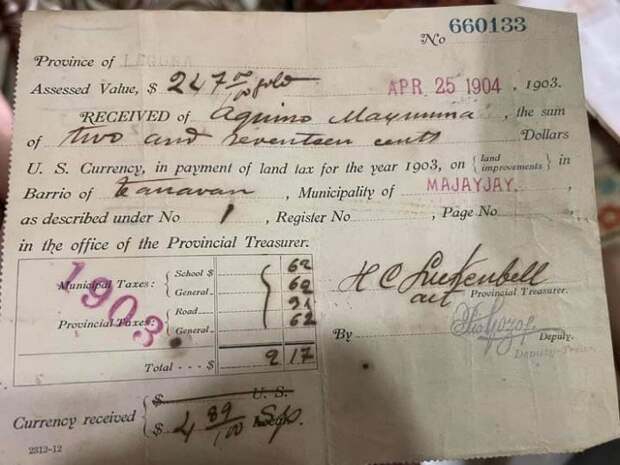 No 660133
Province of
Assessed Value, $ 247 00/100 gold APR 25 1904, 1903.
RECEIVED of Aquino, the sum
of two and seventeen cents Dollars
U. S. Currency, in payment of land tax for the year 1903, on { land improvements } in
Barrio of, Municipality of MAJAYJAY.,
as described under No 1, Register No, Page No
in the office of the Provincial Treasurer.
1903
Municipal Taxes: { School $ 62
General 62
Provincial Taxes: { Road 31
General 62
Total - - - $ 2 17
H C Luckenbell
act Provincial Treasurer.
By Deputy.
Currency received { $ U. S.
$ 4 89/100 Sp.
2312-12